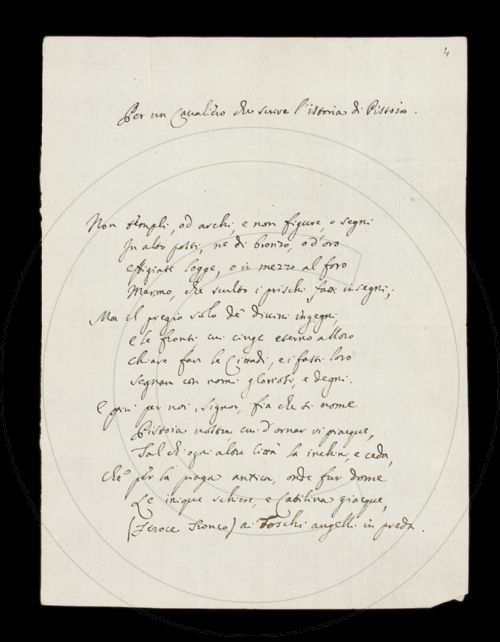 4
Per un Cavaliero che scrive l'istoria di Pistoia.
Non templi, od archi, e non figure, o segni
In alto posti, nè di bronzo, o d'oro
effigiate logge, o in mezzo al foro
Marmo, che sculto i prischi fatti insegni;
Ma el pregio solo de' divini ingegni,
e le fronti cui cinge eterno alloro
chiare fan le Cittadi, e i fatti loro
segnan con nomi gloriosi, e degni.
E più per voi, Signor, fia che si nome
Pistoia vostra cui d'ornar vi piacque,
Tal ch'ogni altra Città la inchini, e ceda,
che per la piaga antica, onde fur dome
Le inique schiere, e Catilina giacque,
(Feroce Tronco) ai Toschi augelli in preda.